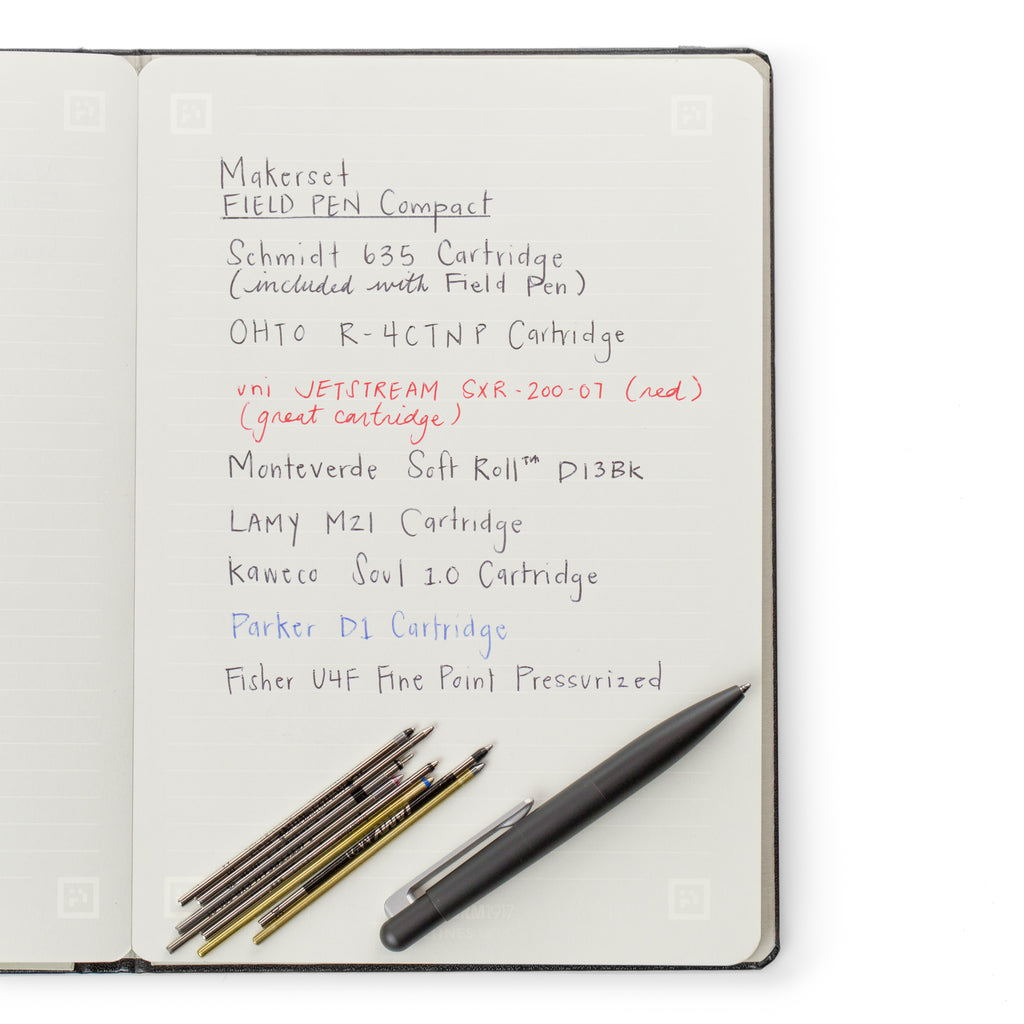 Makerset
FIELD PEN Compact
Schmidt 635 Cartridge
(included with Field Pen)
OHTO R-4CTNP Cartridge
uni JETSTREAM SXR-200-07 (red)
(great cartridge)
Monteverde Soft Roll™ D13BK
LAMY M21 Cartridge
Kaweco Soul 1.0 Cartridge
Parker D1 Cartridge
Fisher U4F Fine Point Pressurized